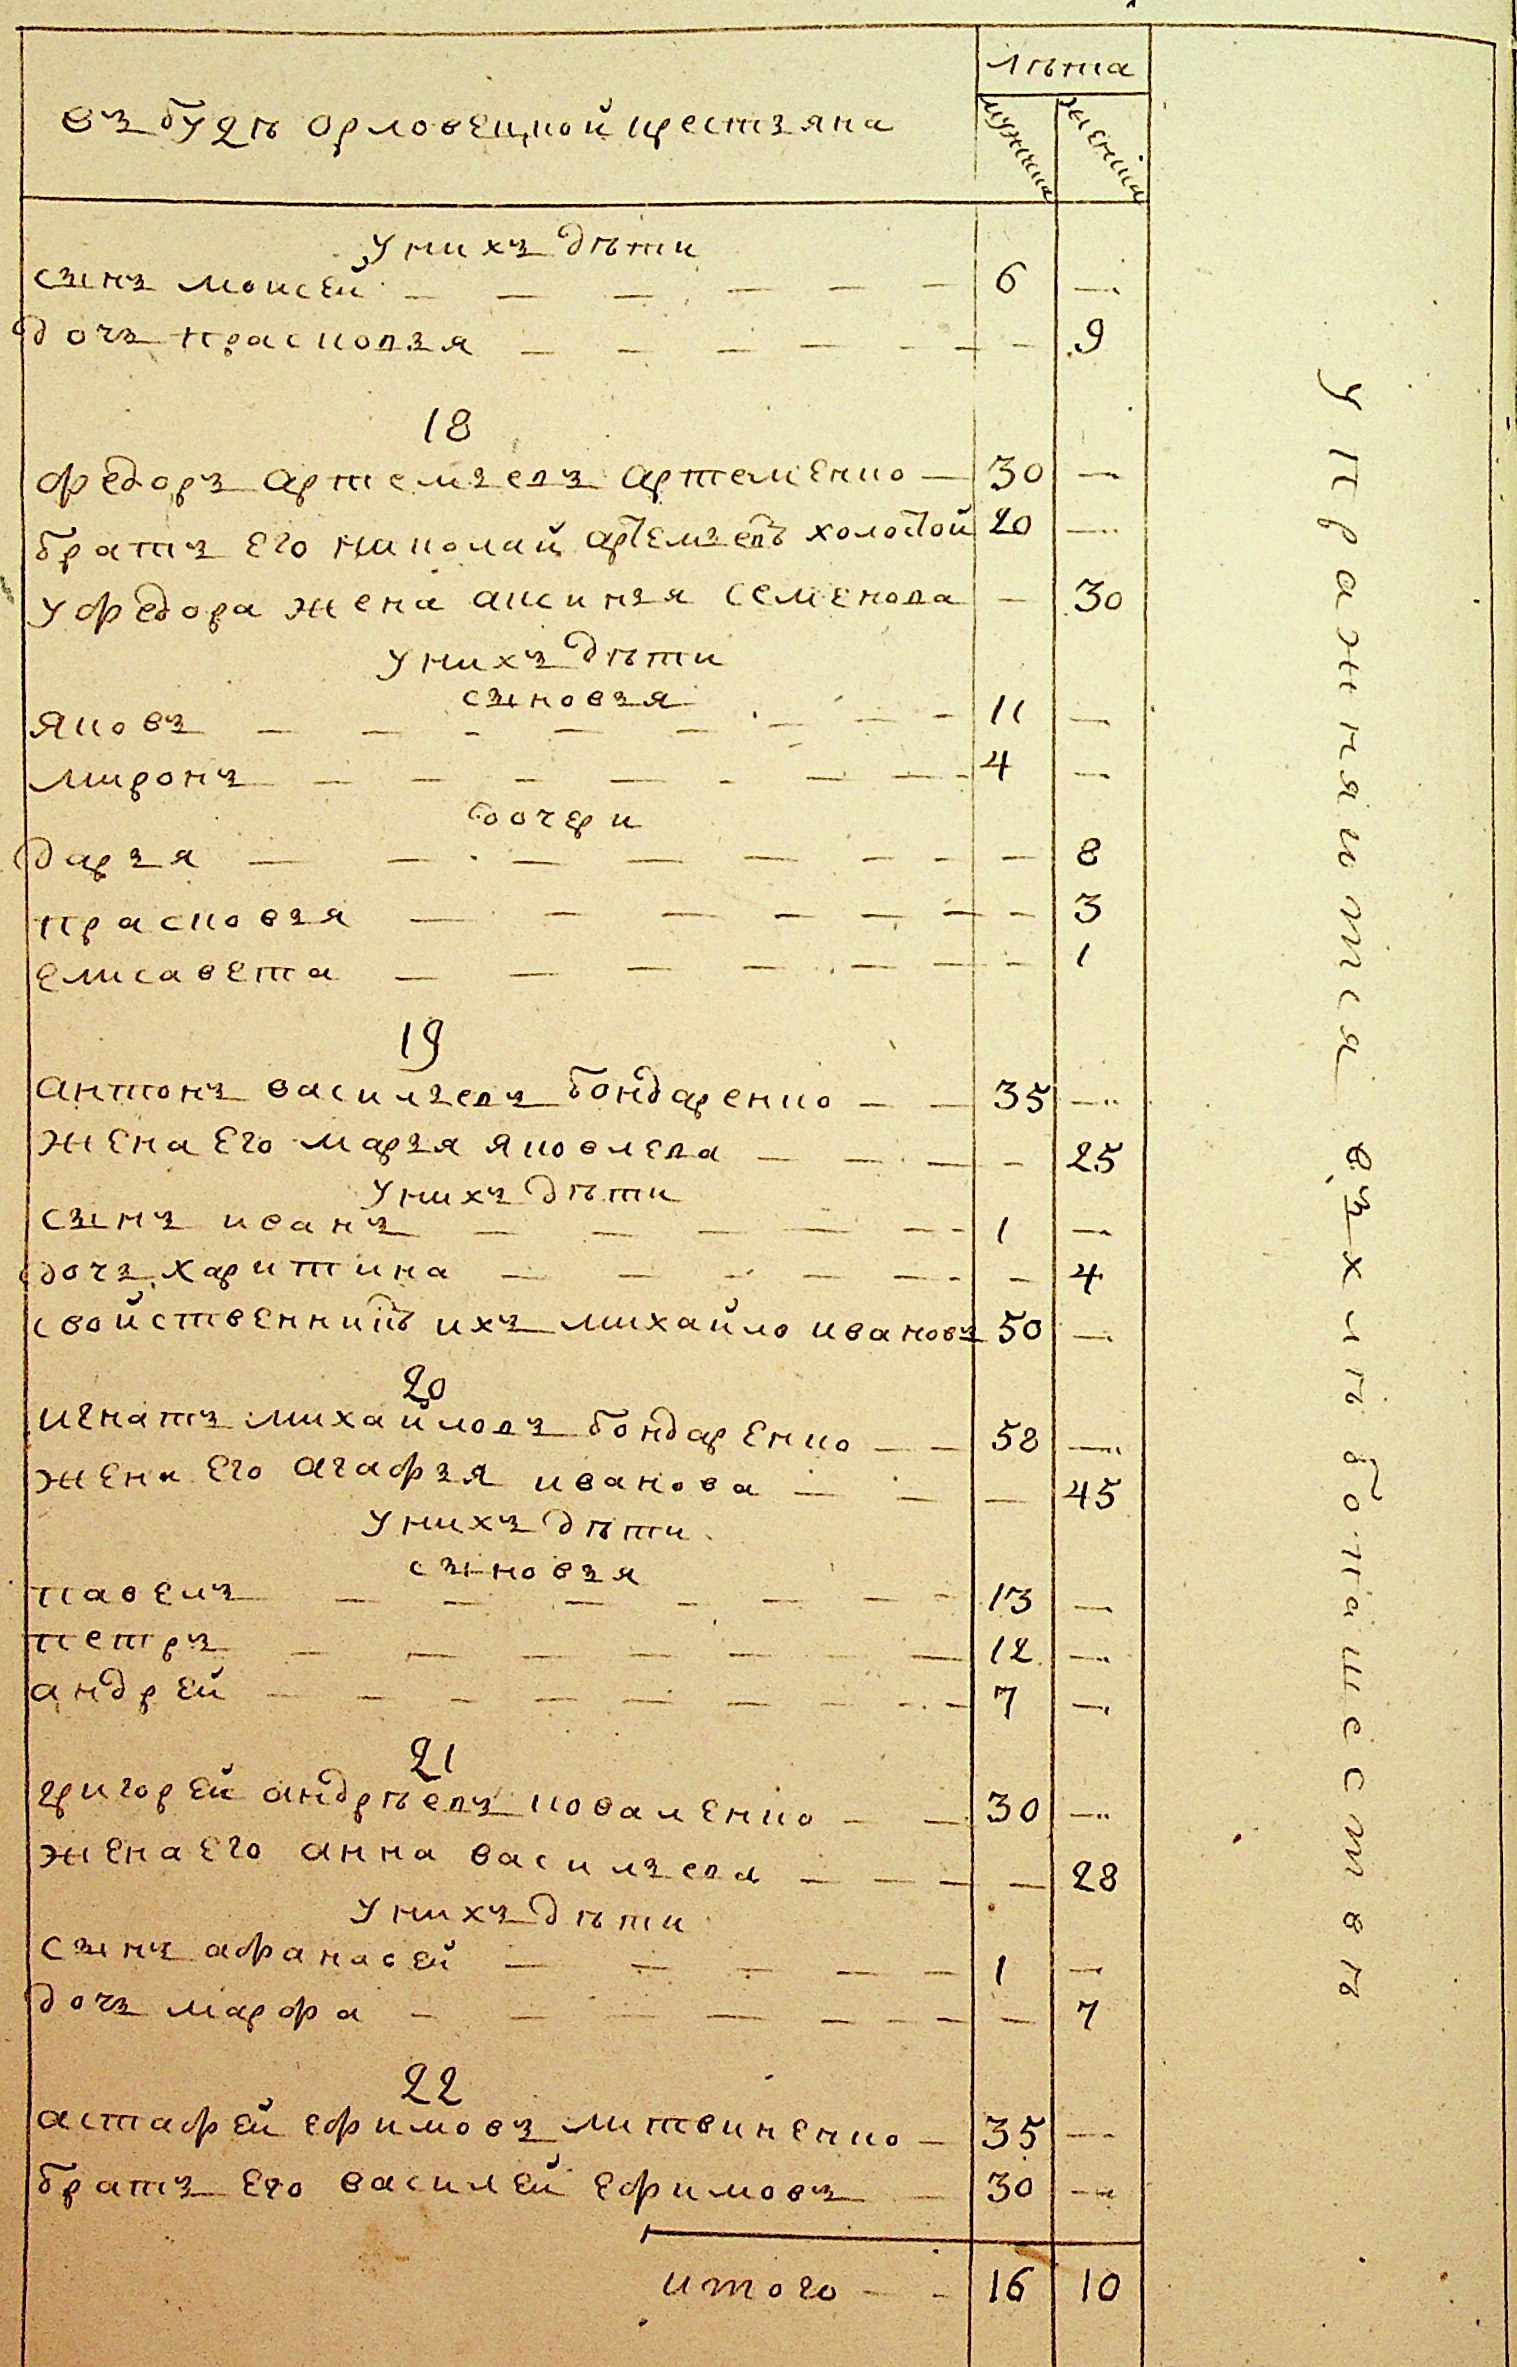 лѣта
въ будѣ орловецкой крестьяна
мужчина
женщина
у нихъ дѣти
сынъ моисей — — — — — — 6 —
дочь прасковья — — — — — — — 9
18
федоръ артемьевъ артеменко — 30 —
братъ его николай артемьевъ холостой 20 —
у федора жена аксинья семенова — 30
у нихъ дѣти
сыновья
яковъ — — — — — — — 11 —
миронъ — — — — — — — 4 —
дочери
дарья — — — — — — — — 8
прасковья — — — — — — — 3
елисавета — — — — — — — 1
19
антонъ васильевъ бондаренко — — 35 —
жена его марья яковлева — — — — 25
у нихъ дѣти
сынъ иванъ — — — — — — 1 —
дочь харитина — — — — — — — 4
свойственникъ ихъ михайло ивановъ 50 —
20
игнатъ михайловъ бондаренко — — 58 —
жена его агафья иванова — — — 45
у нихъ дѣти
сыновья
павелъ — — — — — — — 13 —
петръ — — — — — — — 12 —
андрей — — — — — — — — 7 —
21
григорей андрѣевъ коваленко — — 30 —
жена его анна васильева — — — — 28
у нихъ дѣти
сынъ афанасей — — — — — 1 —
дочь марфа — — — — — — — — 7
22
астафей ефимовъ литвиненко — 35 —
братъ его василей ефимовъ — 30 —
итого — — 16 10
упражняются въ хлѣбопашествѣ